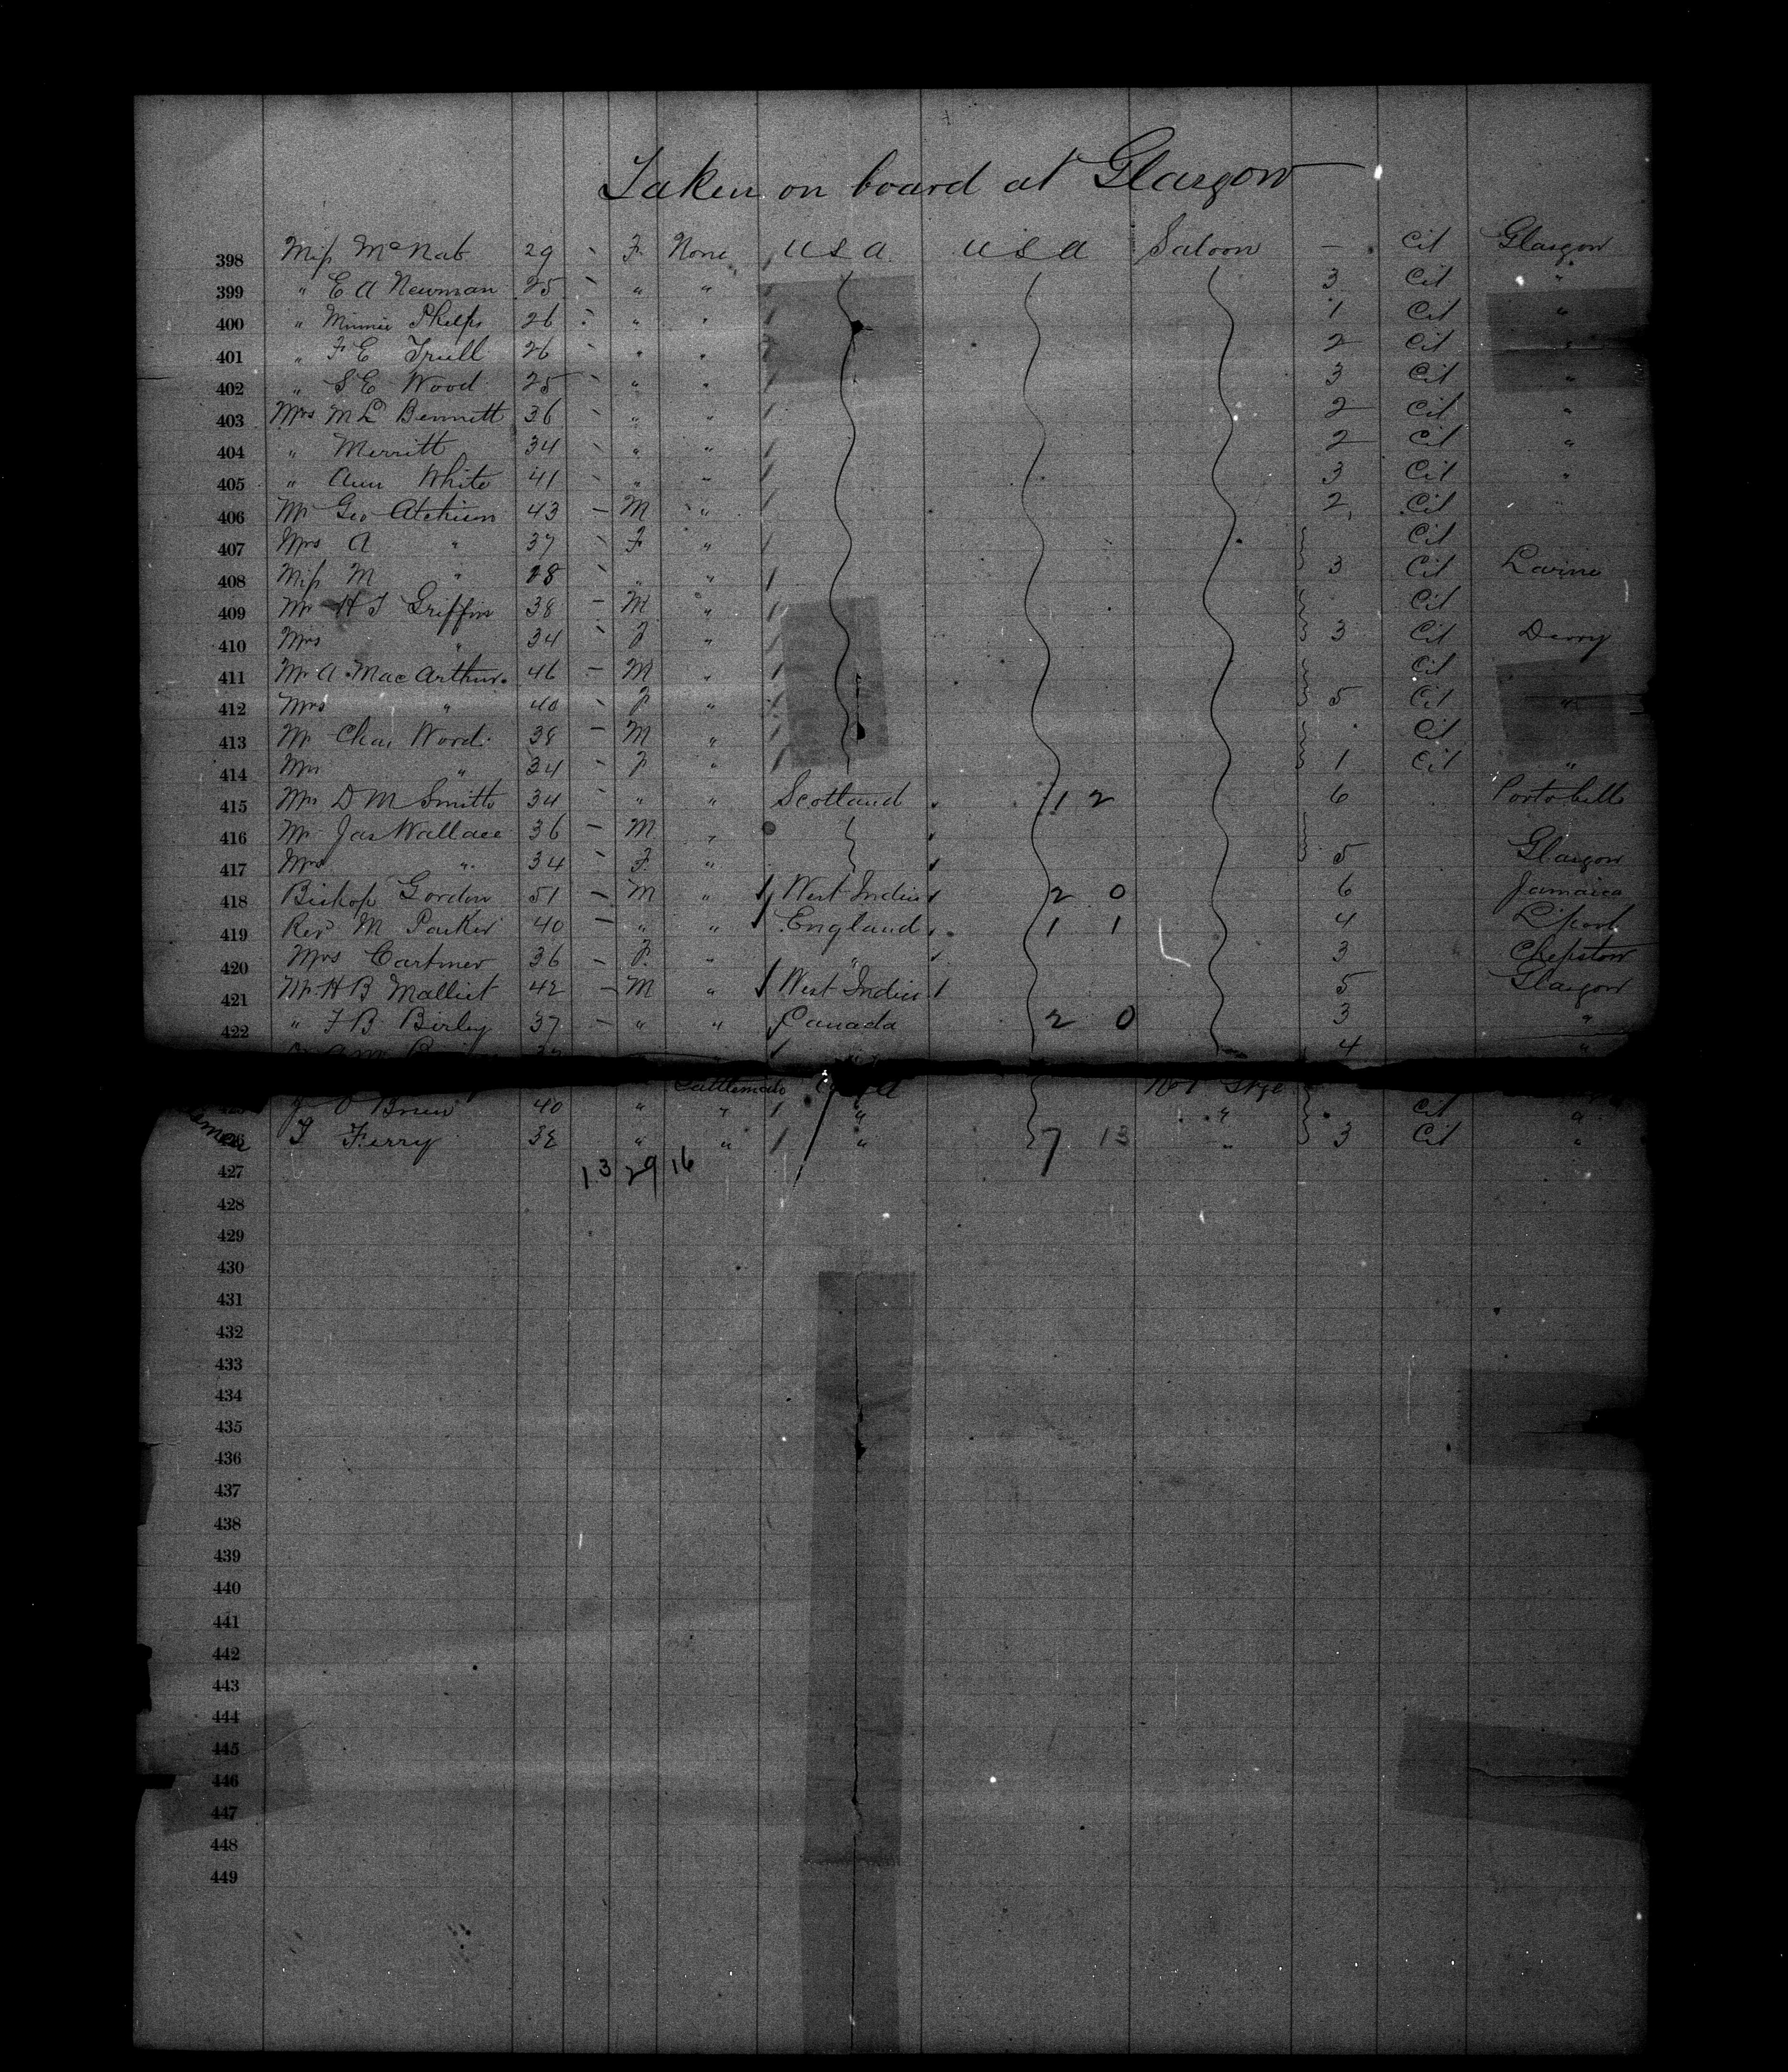 Taken on board at Glasgow
398 Miss McNab 29 - F. None / U S A U S A Saloon - Cit Glasgow
399 " E A Newman 25 - " " / 3 Cit "
400 " Minnie Phelps 26 - " " / 1 Cit "
401 " F E Trull 26 - " " / 2 Cit "
402 " S E Wood 25 - " " / 3 Cit "
403 Mrs M L Bennett 36 - " " / 2 Cit "
404 " Merritt 34 - " " / 2 Cit "
405 " Ann White 41 - " " / 3 Cit "
406 Mr Geo Atchison 43 - M " / 2 Cit "
407 Mrs A " 37 - F " / Cit
408 Miss M " 18 - " " / 3 Cit
409 Mr H T Griffin 38 - M " / Cit
410 Mrs " 34 - F " / 3 Cit Derry
411 Mr A MacArthur 46 - M " / Cit
412 Mrs " 40 - F " / 5 Cit "
413 Mr Chas Word 38 - M " / Cit
414 Mrs " 34 - F " / 1 Cit "
415 Mrs D M Smith 34 - " " Scotland 1 2 6 Portobello
416 Mr Jas Wallace 36 - M "
417 Mrs " 34 - F. " 5 Glasgow
418 Bishop Gordon 51 - M " / West Indies / 2 0 6 Jamaica
419 Rev M Parker 40 - " " / England 1 1 4 L'pool
420 Mrs Cartmer 36 - F. " " 3 Chepstow
421 Mr H B Malliet 42 - M " / West Indies / 5 Glasgow
422 " F B Birley 37 - " " Canada 2 0 3 "
4 "
Cattlemen
O Brien 40 " " / " " Cit "
426 T Ferry 38 " " / " 7 13 " 3 Cit "
427 13 29 16
428
429
430
431
432
433
434
435
436
437
438
439
440
441
442
443
444
445
446
447
448
449